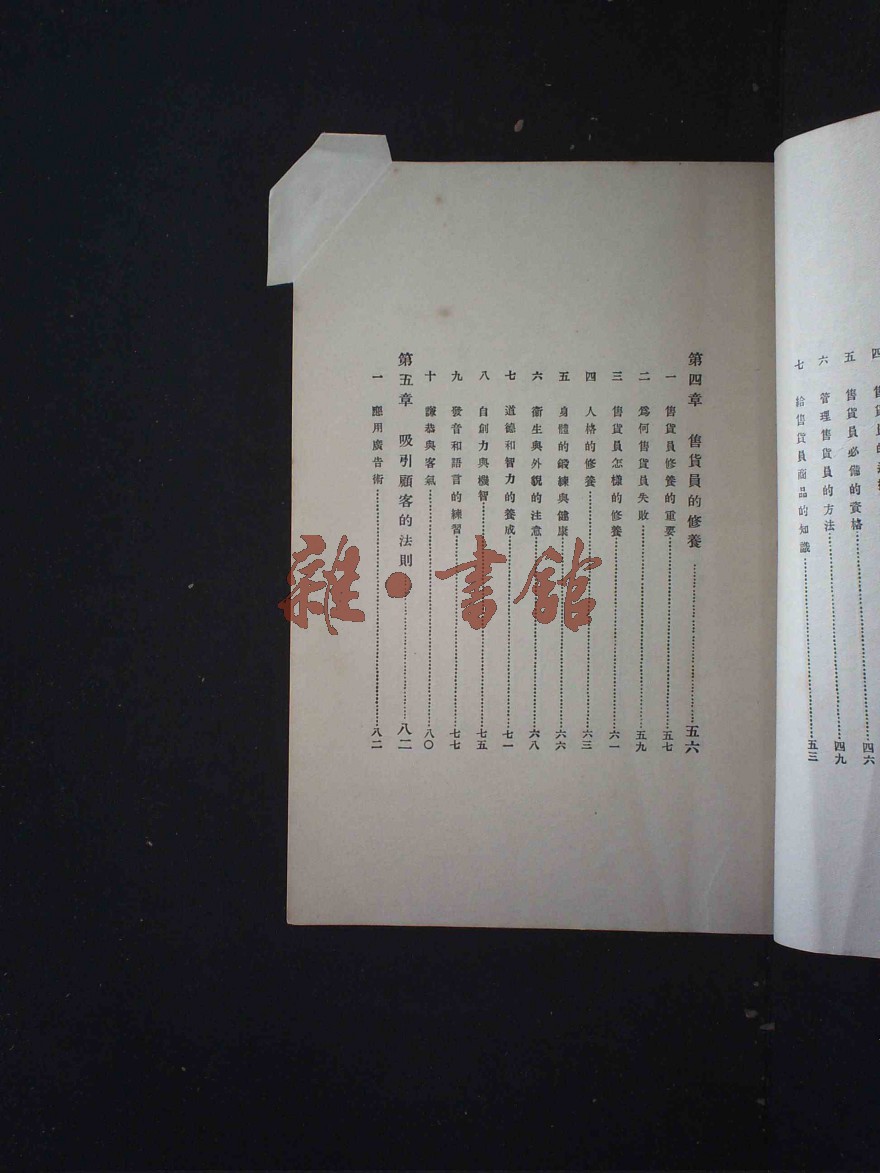 五 售貨員必備的資格……四六
六 管理售貨員的方法……四九
七 給售貨員商品的知識……五三
第四章 售貨員的修養……五六
一 售貨員修養的重要……五七
二 爲何售貨員失敗……五九
三 售貨員怎樣的修養……六一
四 人格的修養……六三
五 身體的鍛練與健康……六六
六 衞生與外貌的注意……六八
七 道德和智力的養成……七一
八 自創力與機智……七五
九 發音和語言的練習……七七
十 謙恭與客氣……八〇
第五章 吸引顧客的法則……八二
一 應用廣告術……八二
雜·書館